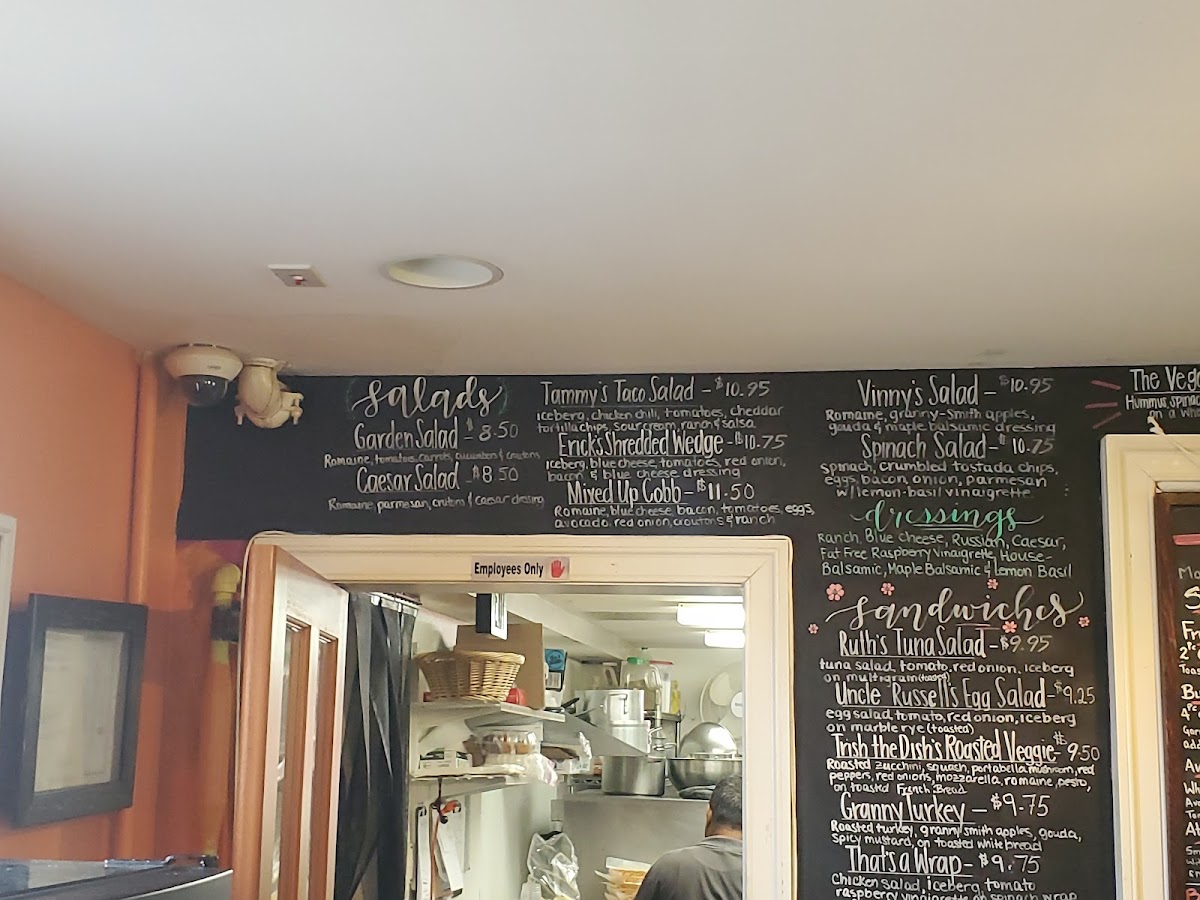 Salads
Garden Salad - $8.50
Romaine, tomatoes, carrots, cucumbers & croutons
Caesar Salad - $8.50
Romaine, parmesan, crutons & caesar dressing
Tammy's Taco Salad - $10.95
iceberg, chicken chili, tomatoes, cheddar
tortilla chips, sour cream, ranch & salsa
Erick's Shredded Wedge - $10.75
Iceberg, blue cheese, tomatoes, red onion,
bacon & blue cheese dressing
Mixed Up Cobb - $11.50
Romaine, blue cheese, bacon, tomatoes, eggs,
avocado, red onion, croutons & ranch
Vinny's Salad - $10.95
Romaine, granny-smith apples,
gouda & maple balsamic dressing
Spinach Salad - $10.75
spinach, crumbled tostada chips,
eggs, bacon, onion, parmesan
w/lemon-basil vinaigrette
dressings
Ranch, Blue Cheese, Russian, Caesar,
Fat Free Raspberry Vinaigrette, House-
Balsamic, Maple Balsamic & Lemon Basil
Sandwiches
Ruth's Tuna Salad - $9.95
tuna salad, tomato, red onion, iceberg
on multigrain (toasted)
Uncle Russell's Egg Salad - $9.25
egg salad, tomato, red onion, iceberg
on marble rye (toasted)
Trish the Dish's Roasted Veggie - $9.50
Roasted zucchini, squash, portabella mushroom, red
peppers, red onions, mozzarella, romaine, pesto,
on toasted French Bread
Granny Turkey - $9.75
Roasted turkey, granny smith apples, gouda,
spicy mustard, on toasted white bread
That's a Wrap - $9.75
Chicken salad, iceberg, tomato
raspberry vinaigrette on spinach wrap
The Vegg
Hummus, spinac
on a whe
Employees Only